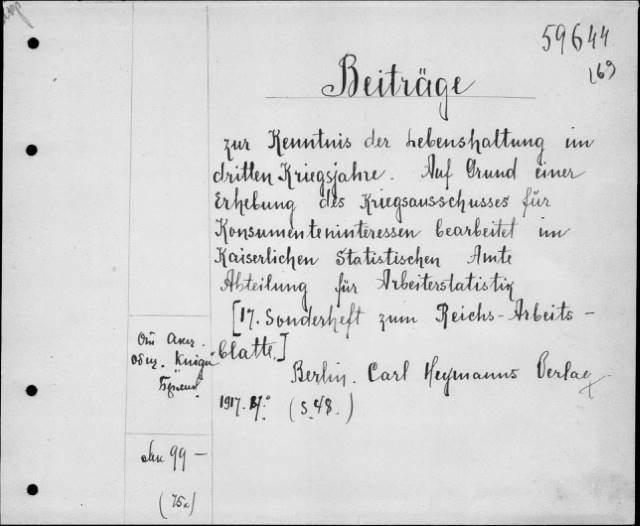 59644
Beiträge
zur Kenntnis der Lebenshaltung im
dritten Kriegsjahre. Auf Grund einer
Erhebung des Kriegsausschusses für
Konsumenteninteressen bearbeitet im
Kaiserlichen Statistischen Amte
Abteilung für Arbeiterstatistik
[17. Sonderheft zum Reichs-Arbeits-
blatte.]
Berlin. Carl Heymanns Verlag
1917. 4°. (S. 48.)
99 —